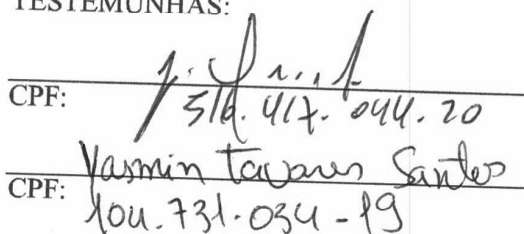 TESTEMUNHAS:
CPF: 516.417.044.20
Yasmin Tavares Santos
CPF: 104.731.034-19